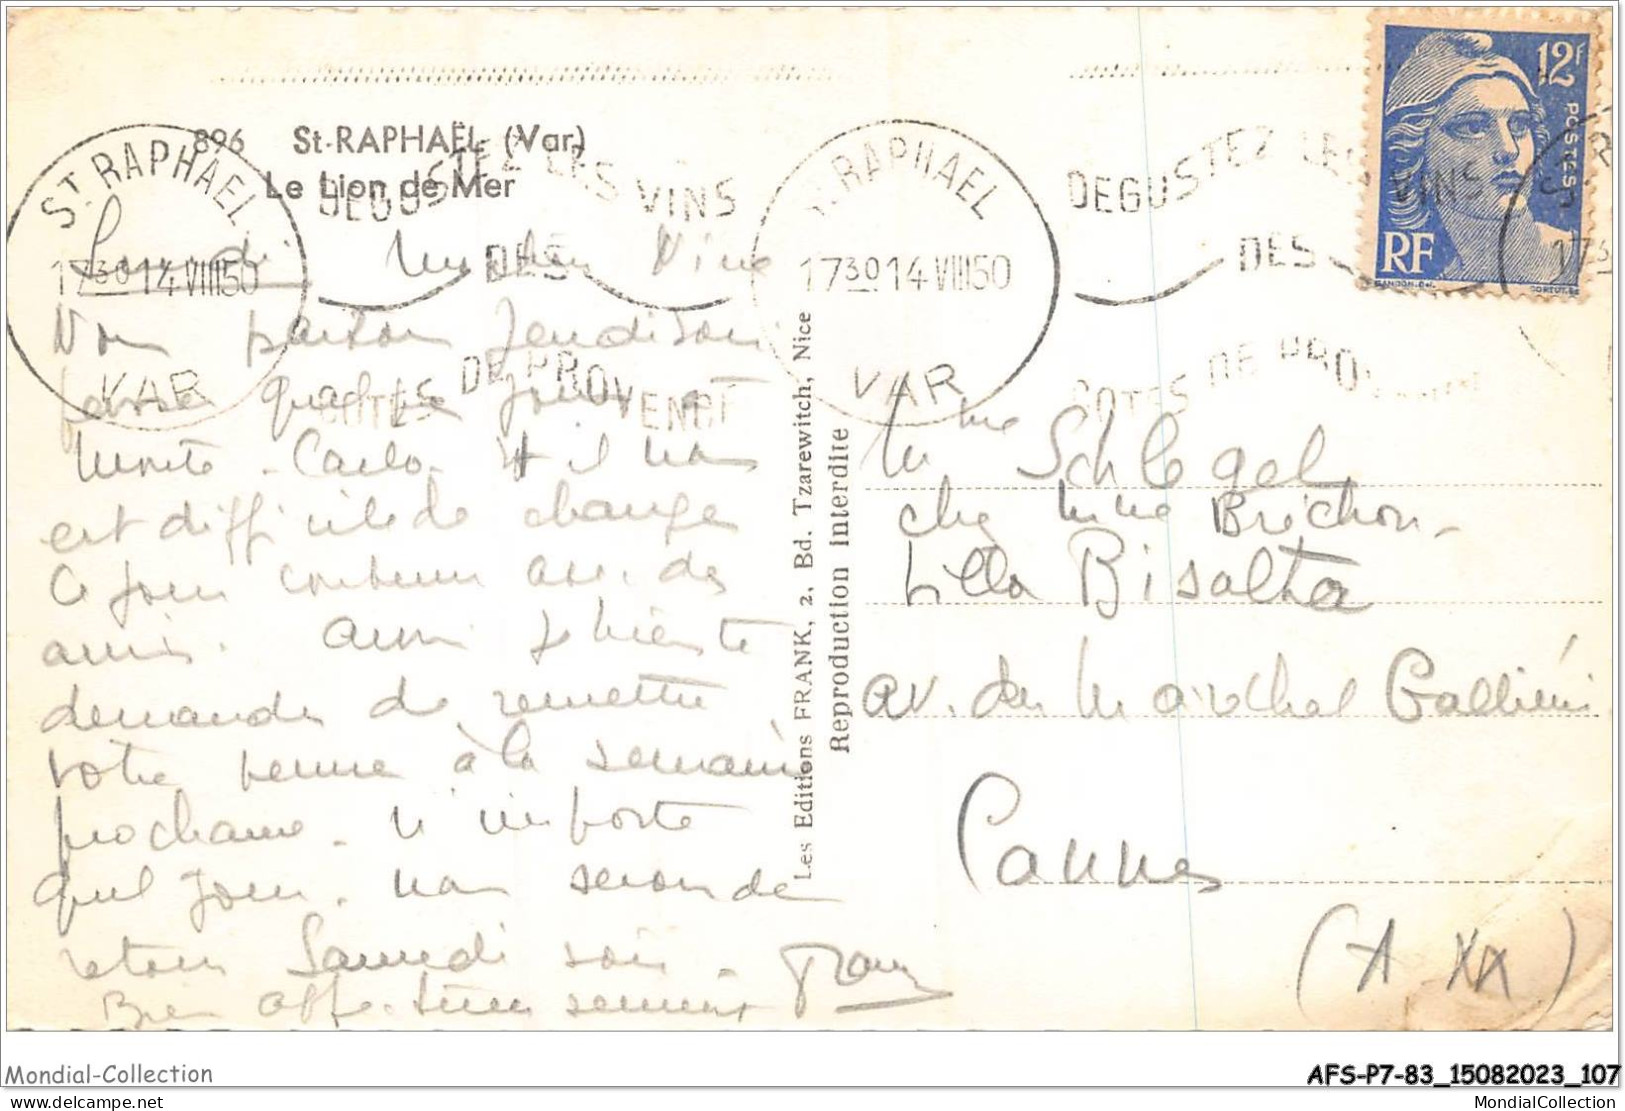 896 St-RAPHAËL (Var)
Le Lion de Mer
ST RAPHAEL
17 30 14 VIII 50
VAR
DEGUSTEZ LES VINS
DES
COTES DE PROVENCE
ST RAPHAEL
17 30 14 VIII 50
VAR
DEGUSTEZ LES VINS
DES
COTES DE PROVENCE
12F
POSTES
RF
GANDON.Del.
CORTOT.SC
Lundi
Nous partons Jeudi soir
passer quelques jours à
Monte-Carlo. Et il nous
est difficile de changer
ce jour convenu avec des
amis. Aussi je viens te
demander de remettre
votre venue à la semaine
prochaine. n'importe
quel jour. nous serons de
retour Samedi soir.
Bien affectueusement
Les Editions FRANK, 2, Bd. Tzarewitch, Nice
Reproduction interdite
Mme Schlegel
chez Mme Brichon
Villa Bisalta
av. du Marechal Gallieni
Cannes
(A M)
Mondial-Collection
AFS-P7-83_15082023_107
delcampe.net
MondialCollection